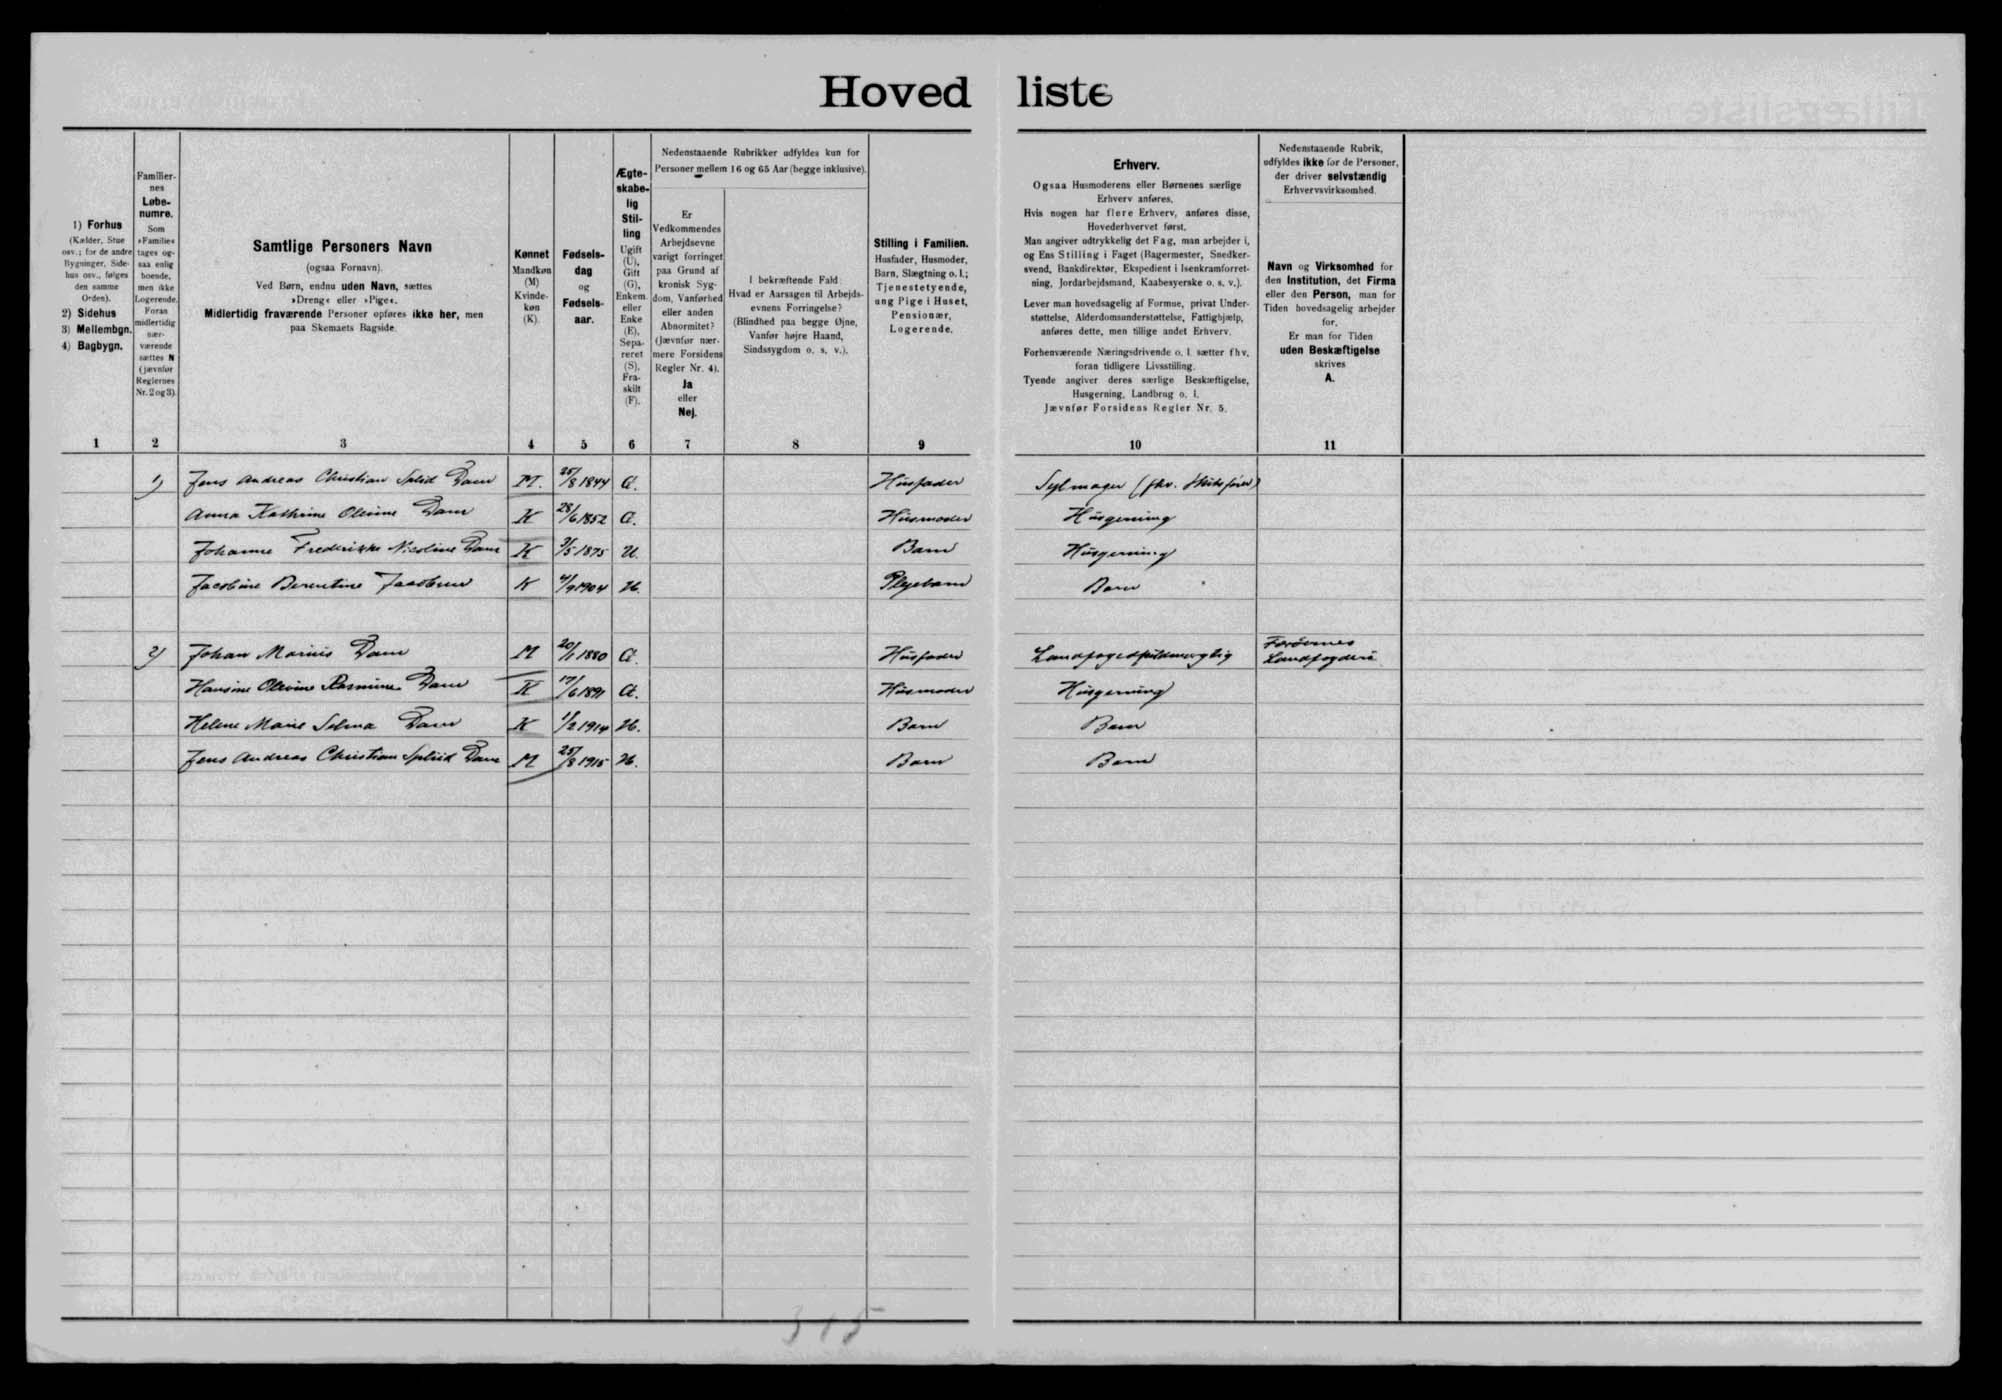 Hoved liste
1) Forhus
(Kælder, Stue
osv.; for de andre
Bygninger, Side-
hus osv., følges
den samme
Orden).
2) Sidehus
3) Mellembgn.
4) Bagbygn.
1
Familier-
nes
Løbe-
numre.
Som
»Familie«
tages og-
saa enlig
boende,
men ikke
Logerende.
Foran
midlertidig
nær-
værende
sættes N
(jævnfør
Reglernes
Nr. 2 og 3)
2
Samtlige Personers Navn
(ogsaa Fornavn).
Ved Børn, endnu uden Navn, sættes
»Dreng« eller »Pige«.
Midlertidig fraværende Personer opføres ikke her, men
paa Skemaets Bagside.
3
Kønnet
Mandkøn
(M)
Kvinde-
køn
(K).
4
Fødsels-
dag
og
Fødsels-
aar.
5
Ægte-
skabe-
lig
Stil-
ling
Ugift
(U),
Gift
(G),
Enkem.
eller
Enke
(E),
Sepa-
reret
(S),
Fra-
skilt
(F).
6
Nedenstaaende Rubrikker udfyldes kun for
Personer mellem 16 og 65 Aar (begge inklusive).
Er
Vedkommendes
Arbejdsevne
varigt forringet
paa Grund af
kronisk Syg-
dom, Vanførhed
eller anden
Abnormitet?
(Jævnfør nær-
mere Forsidens
Regler Nr. 4).
Ja
eller
Nej.
7
I bekræftende Fald:
Hvad er Aarsagen til Arbejds-
evnens Forringelse?
(Blindhed paa begge Øjne,
Vanfør højre Haand,
Sindssygdom o. s. v.).
8
Stilling i Familien.
Husfader, Husmoder,
Barn, Slægtning o. l.;
Tjenestetyende,
ung Pige i Huset,
Pensionær,
Logerende.
9
Erhverv.
Ogsaa Husmoderens eller Børnenes særlige
Erhverv anføres.
Hvis nogen har flere Erhverv, anføres disse,
Hovederhvervet først.
Man angiver udtrykkelig det Fag, man arbejder i,
og Ens Stilling i Faget (Bagermester, Snedker-
svend, Bankdirektør, Ekspedient i Isenkramforret-
ning, Jordarbejdsmand, Kaabesyerske o. s. v.).
Lever man hovedsagelig af Formue, privat Under-
støttelse, Alderdomsunderstøttelse, Fattighjælp,
anføres dette, men tillige andet Erhverv.
Forhenværende Næringsdrivende o. l. sætter fhv.
foran tidligere Livsstilling.
Tyende angiver deres særlige Beskæftigelse,
Husgerning, Landbrug o. l.
Jævnfør Forsidens Regler Nr. 5.
10
Nedenstaaende Rubrik,
udfyldes ikke for de Personer,
der driver selvstændig
Erhvervsvirksomhed.
Navn og Virksomhed for
den Institution, det Firma
eller den Person, man for
Tiden hovedsagelig arbejder
for.
Er man for Tiden
uden Beskæftigelse
skrives
A.
11
1) Jens Andreas Christian Splid Dam M. 25/8 1844 G. Husfader Sejlmager (fhv. Skibsfører)
Anna Kathrine Olevine Dam K 28/6 1852 G. Husmoder Husgerning
Johanne Frederikke Nicoline Dam K 3/5 1875 U. Barn Husgerning
Jacobine Berentine Jacobsen K 4/9 1904 U. Plejebarn Barn
2) Johan Marius Dam M 20/11 1880 G. Husfader Landfogedfuldmægtig Færøernes
Landfogderi
Hansine Olevine Rasmine Dam K 17/6 1891 G. Husmoder Husgerning
Helene Marie Selma Dam K 1/2 1914 U. Barn Barn
Jens Andreas Christian Splid Dam M 25/8 1915 U. Barn Barn